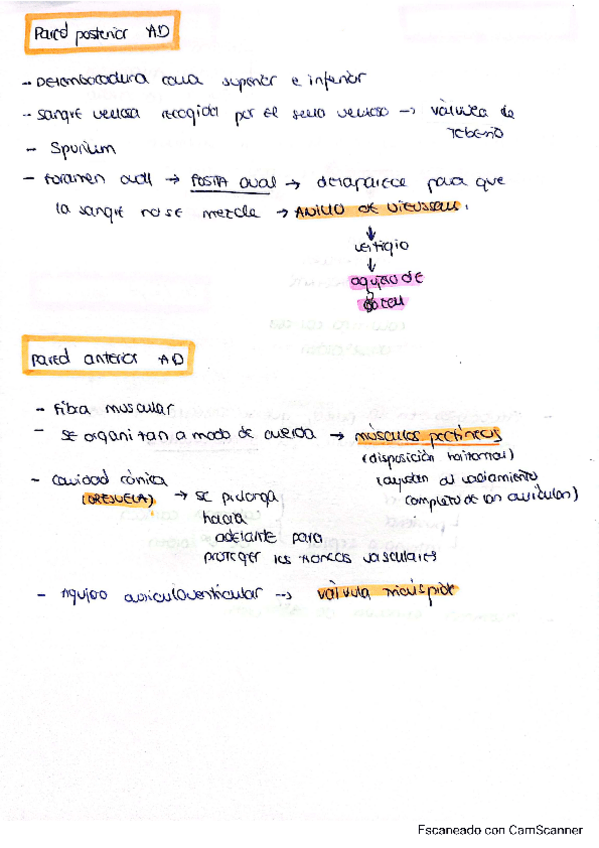 Pared posterior AD
- Desembocadura cava superior e inferior
- Sangre venosa recogida por el seno venoso → válvula de
Tebesio
- Spurium
- Foramen oval → FOSITA oval → desaparece para que
la sangre no se mezcla → ANILLO DE VIEUSSENS.
↓
vestigio
↓
agujero de
Botal
Pared anterior AD
- Fibra muscular
- Se organizan a modo de cuerda → músculos pectíneos
(disposición horizontal)
(ayudan al vaciamiento
completo de las aurículas)
- Cavidad cónica
(OREJUELA) → se prolonga
hacia
adelante para
proteger los troncos vasculares
- Agujero auriculoventricular → válvula tricúspide
Escaneado con CamScanner